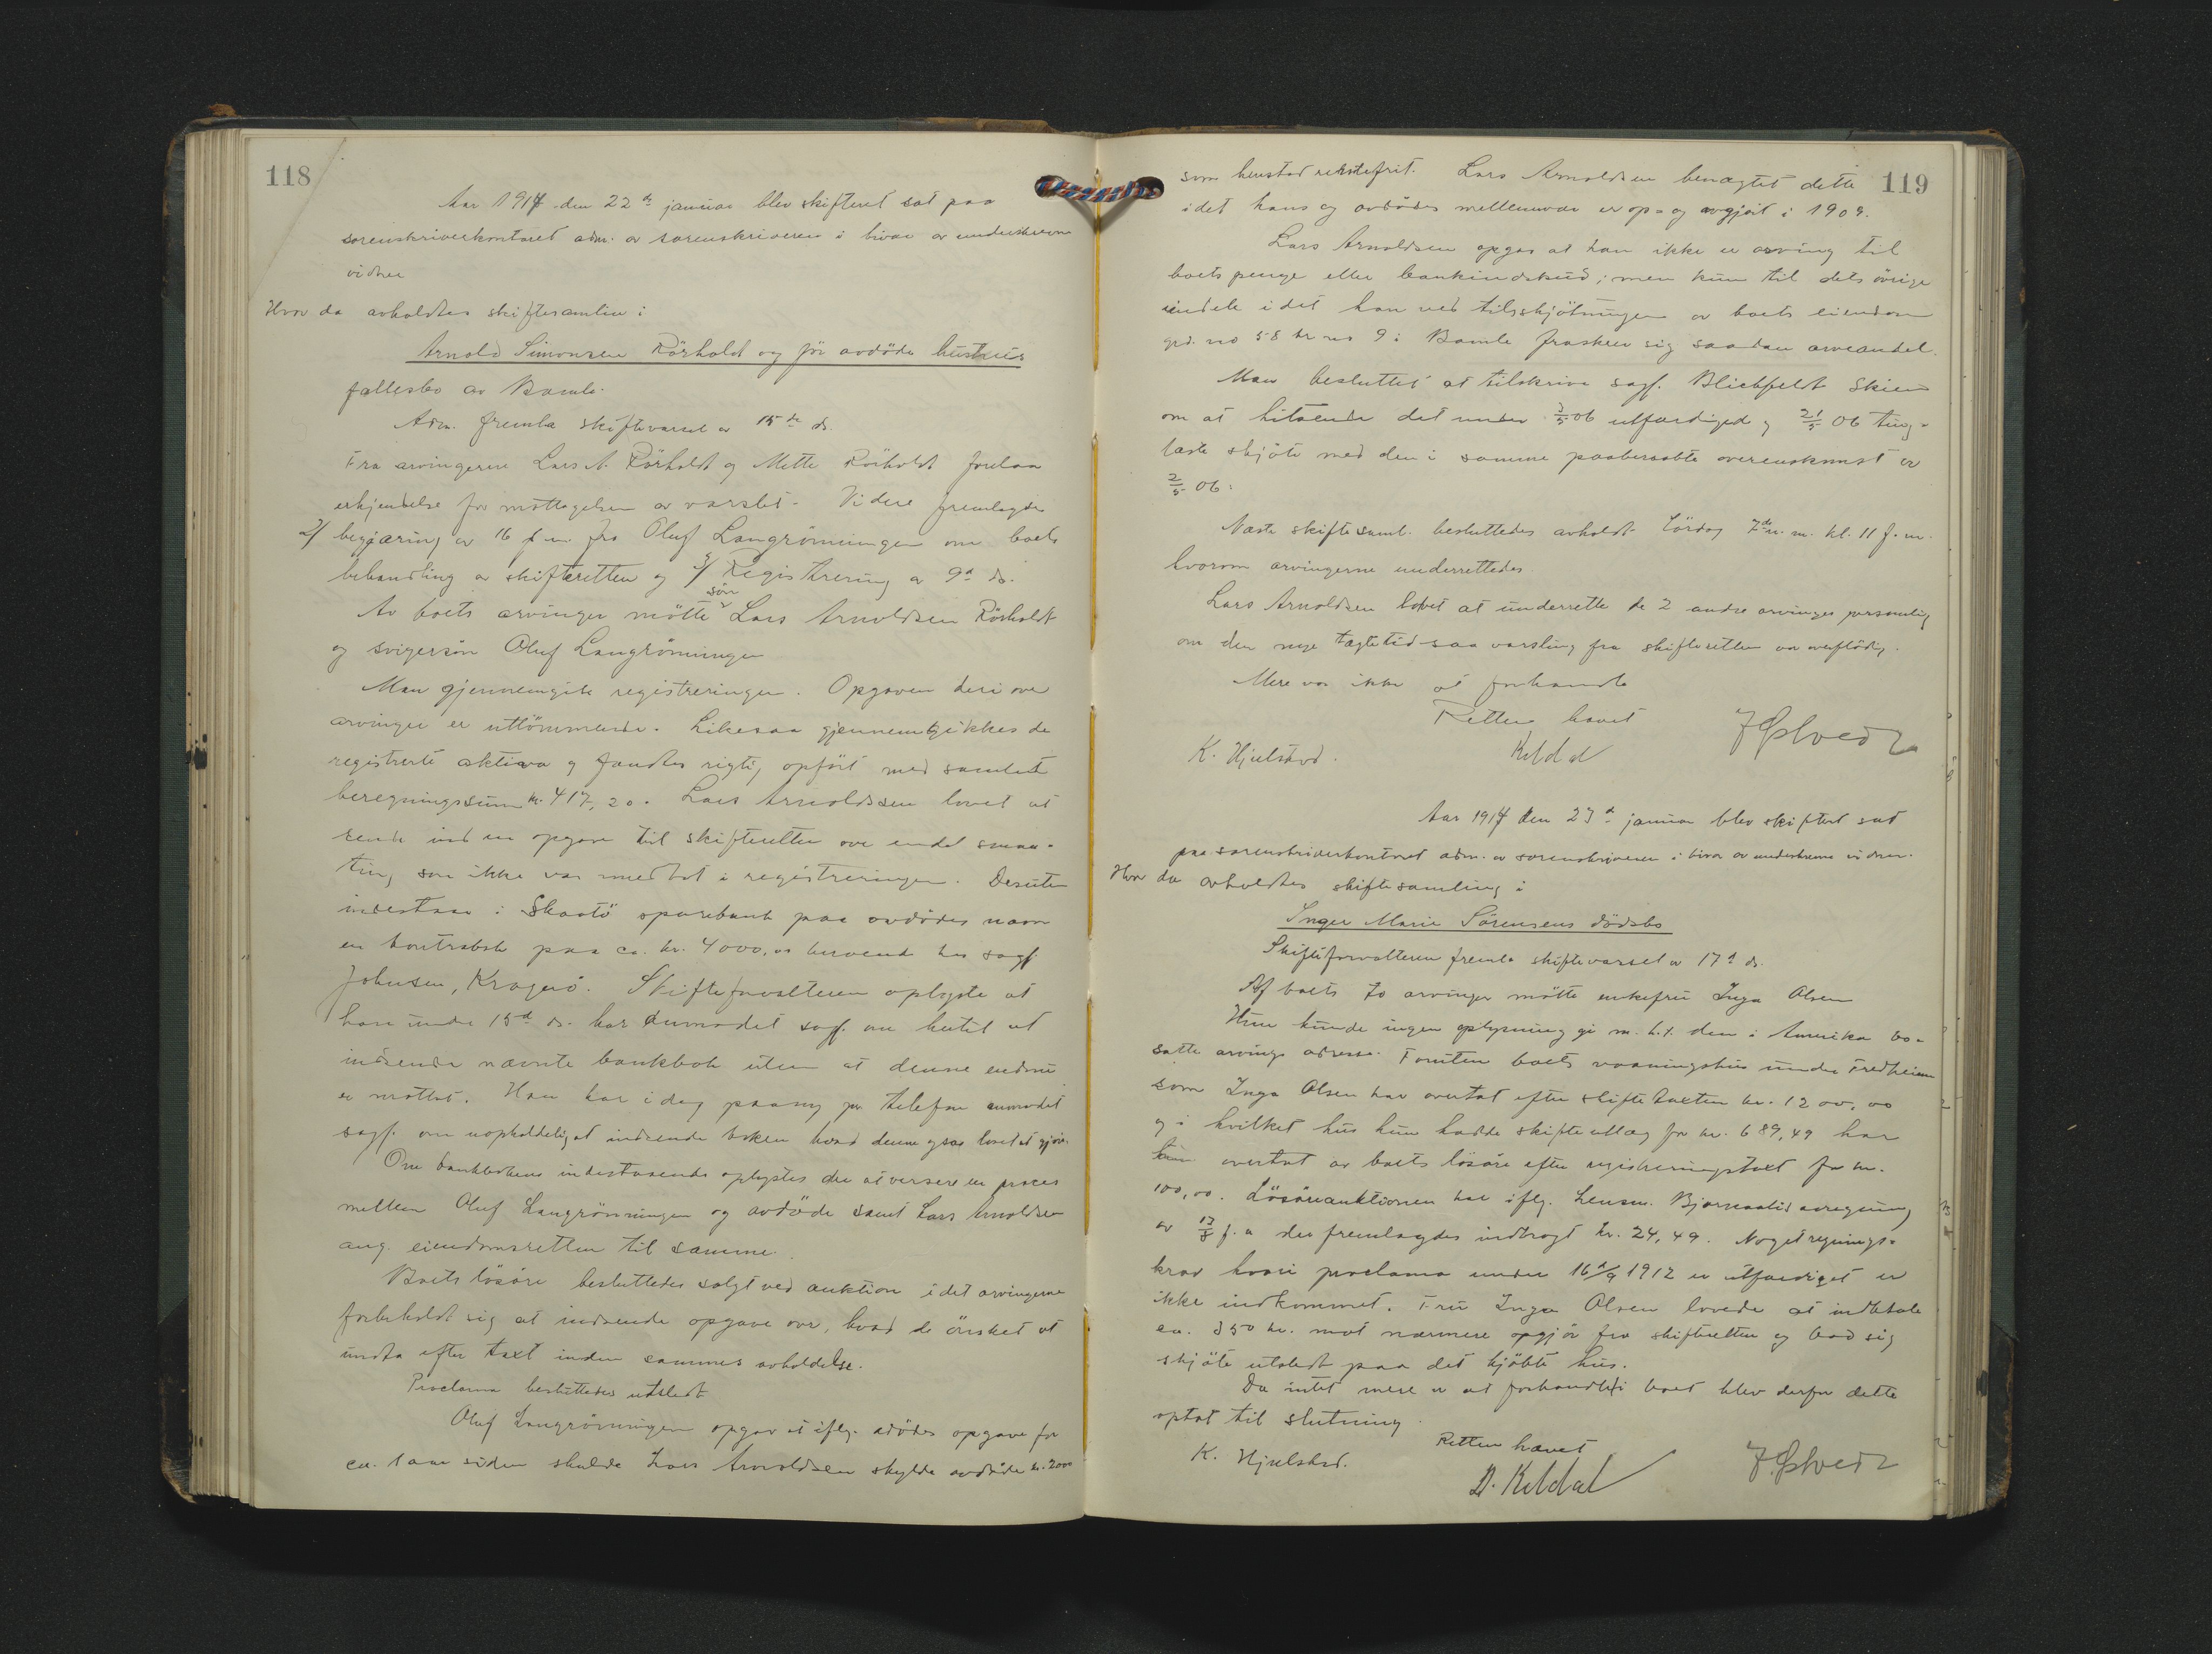 118
Aar 1914 den 22de januar blev skifteret sat paa
sorenskriverkontoret adm. av sorenskriveren i bivær av underskrevne
vidner
Hvor da avholdtes skiftesamling i
Arnold Simonsen Rörholdt og för avdöde hustrus
fællesbo av Bamle.
Adm. fremla skiftevarsel av 15de ds.
Fra arvingerne Lars A. Rörholdt og Mette Rörholdt forelaa
erkjendelse for mottagelsen av varslet. Videre fremlagdes
2/ begjæring av 16 f.m. fra Oluf Langrönningen om boets
behandling av skifteretten og 3/ Registrering av 9d ds.
Av boets arvinger mötte sön Lars Arnoldsen Rörholdt
og svigersön Oluf Langrönningen
Man gjennemgik registreringen. Opgaven deri over
arvinger er uttömmende. Likesaa gjennemgikkes de
registrerte aktiva og fandtes rigtig opfört med samlet
beregningssum kr. 417,20. Lars Arnoldssen lovet at
sende ind en opgave til skifteretten over endel smaa-
ting som ikke var medtat i registreringen. Desuten
indestaar i Skaatö sparebank paa avdödes navn
en kontrabok paa ca. kr. 4000,00 beroende hos sagf.
Johnsen, Kragerö. Skifteforvalteren oplyste at
han under 15d ds. har anmodet sagf. om hertil at
indsende nævnte bankbok uten at denne endnu
er mottat. Han har idag paany pr. telefon anmodet
sagf. om uopholdeligt at indsende boken hvad denne ogsaa lovet at gjöre.
Om bankbokens indestaaende oplystes der at versere en proces
mellem Oluf Langrönningen og avdöde samt Lars Arnoldsen
ang. eiendomsretten til samme.
Boets lösöre besluttedes solgt ved auktion idet arvingerne
forbeholdt sig at indsende opgave over, hvad de önsket at
undta efter taxt inden sammes avholdelse.
Proclama besluttedes utstedt
Oluf Langrönningen opgav at iflg. avdödes opgave for
ca. 1 aar siden skulde Lars Arnoldsen skylde avdöde kr. 2000
119
som henstod rentefrit. Lars Arnoldsen benægtet dette
idet hans og avdödes mellemvær er op- og avgjort i 1909.
Lars Arnoldsen opgav at han ikke er arving til
boets penge eller bankindskud; men kun til dets övrige
eiendele idet han ved tilskjötningen av boets eiendom
grd. no 58 br no 9 i Bamle fraskrev sig saadan arveandel.
Man besluttet at tilskrive sagf. Blichfeldt Skien
om at hitsende det under 3/5 06 utfærdiged og 21/5 06 ting-
læste skjöte med den i samme paaberaabte overenskomst av
2/5 06.
Næste skiftesaml. besluttedes avholdt Lördag 7de n.m. kl. 11 f.m.
hvorom arvingerne underrettedes.
Lars Arnoldsen lovet at underrette de 2 andre arvinger personlig
om den nye tægtetid saa varsling fra skifteretten var overflödig.
Mere var ikke at forhandle
Retten hævet
K. Hjelstad. Keldal J Östvedt
Aar 1914 den 23d januar blev skifteret sat
paa sorenskriverkontoret adm. av sorenskriveren i bivær av underskrevne vidner.
Hvor da avholdtes skiftesamling i
Inger Marie Sörensens dödsbo
Skifteforvalteren fremla skiftevarsel av 17d ds.
Af boets to arvinger mötte enkefru Inga Olsen
Hun kunde ingen oplysning gi m.h.t. den i Amerika bo-
satte arvings adresse. Foruten boets vaaningshus under Fredheim
som Inga Olsen har overtat efter skiftetaxten kr. 1200,00
og i hvilket hus hun hadde skifteutlæg for kr. 689,49 har
hun overtat av boets lösöre efter registreringstaxt for kr.
100,00. Lösöreauktionen har iflg. Lensm. avregning
av 13/8 f.a der fremlagdes indbragt kr. 24,49. Noget regnings-
krav hvori proclama under 16d/9 1912 er utfærdiget er
ikke indkommet. Fru Inga Olsen lovede at indbetale
ca. 350 kr. mot nærmere opgjör fra skifteretten og bad sig
skjöte utstedt paa det kjöbte hus.
Da intet mere er at forhandle i boet blev derfor dette
optat til slutning.
Retten hævet
K. Hjelstad. D. Keldal J Östvedt